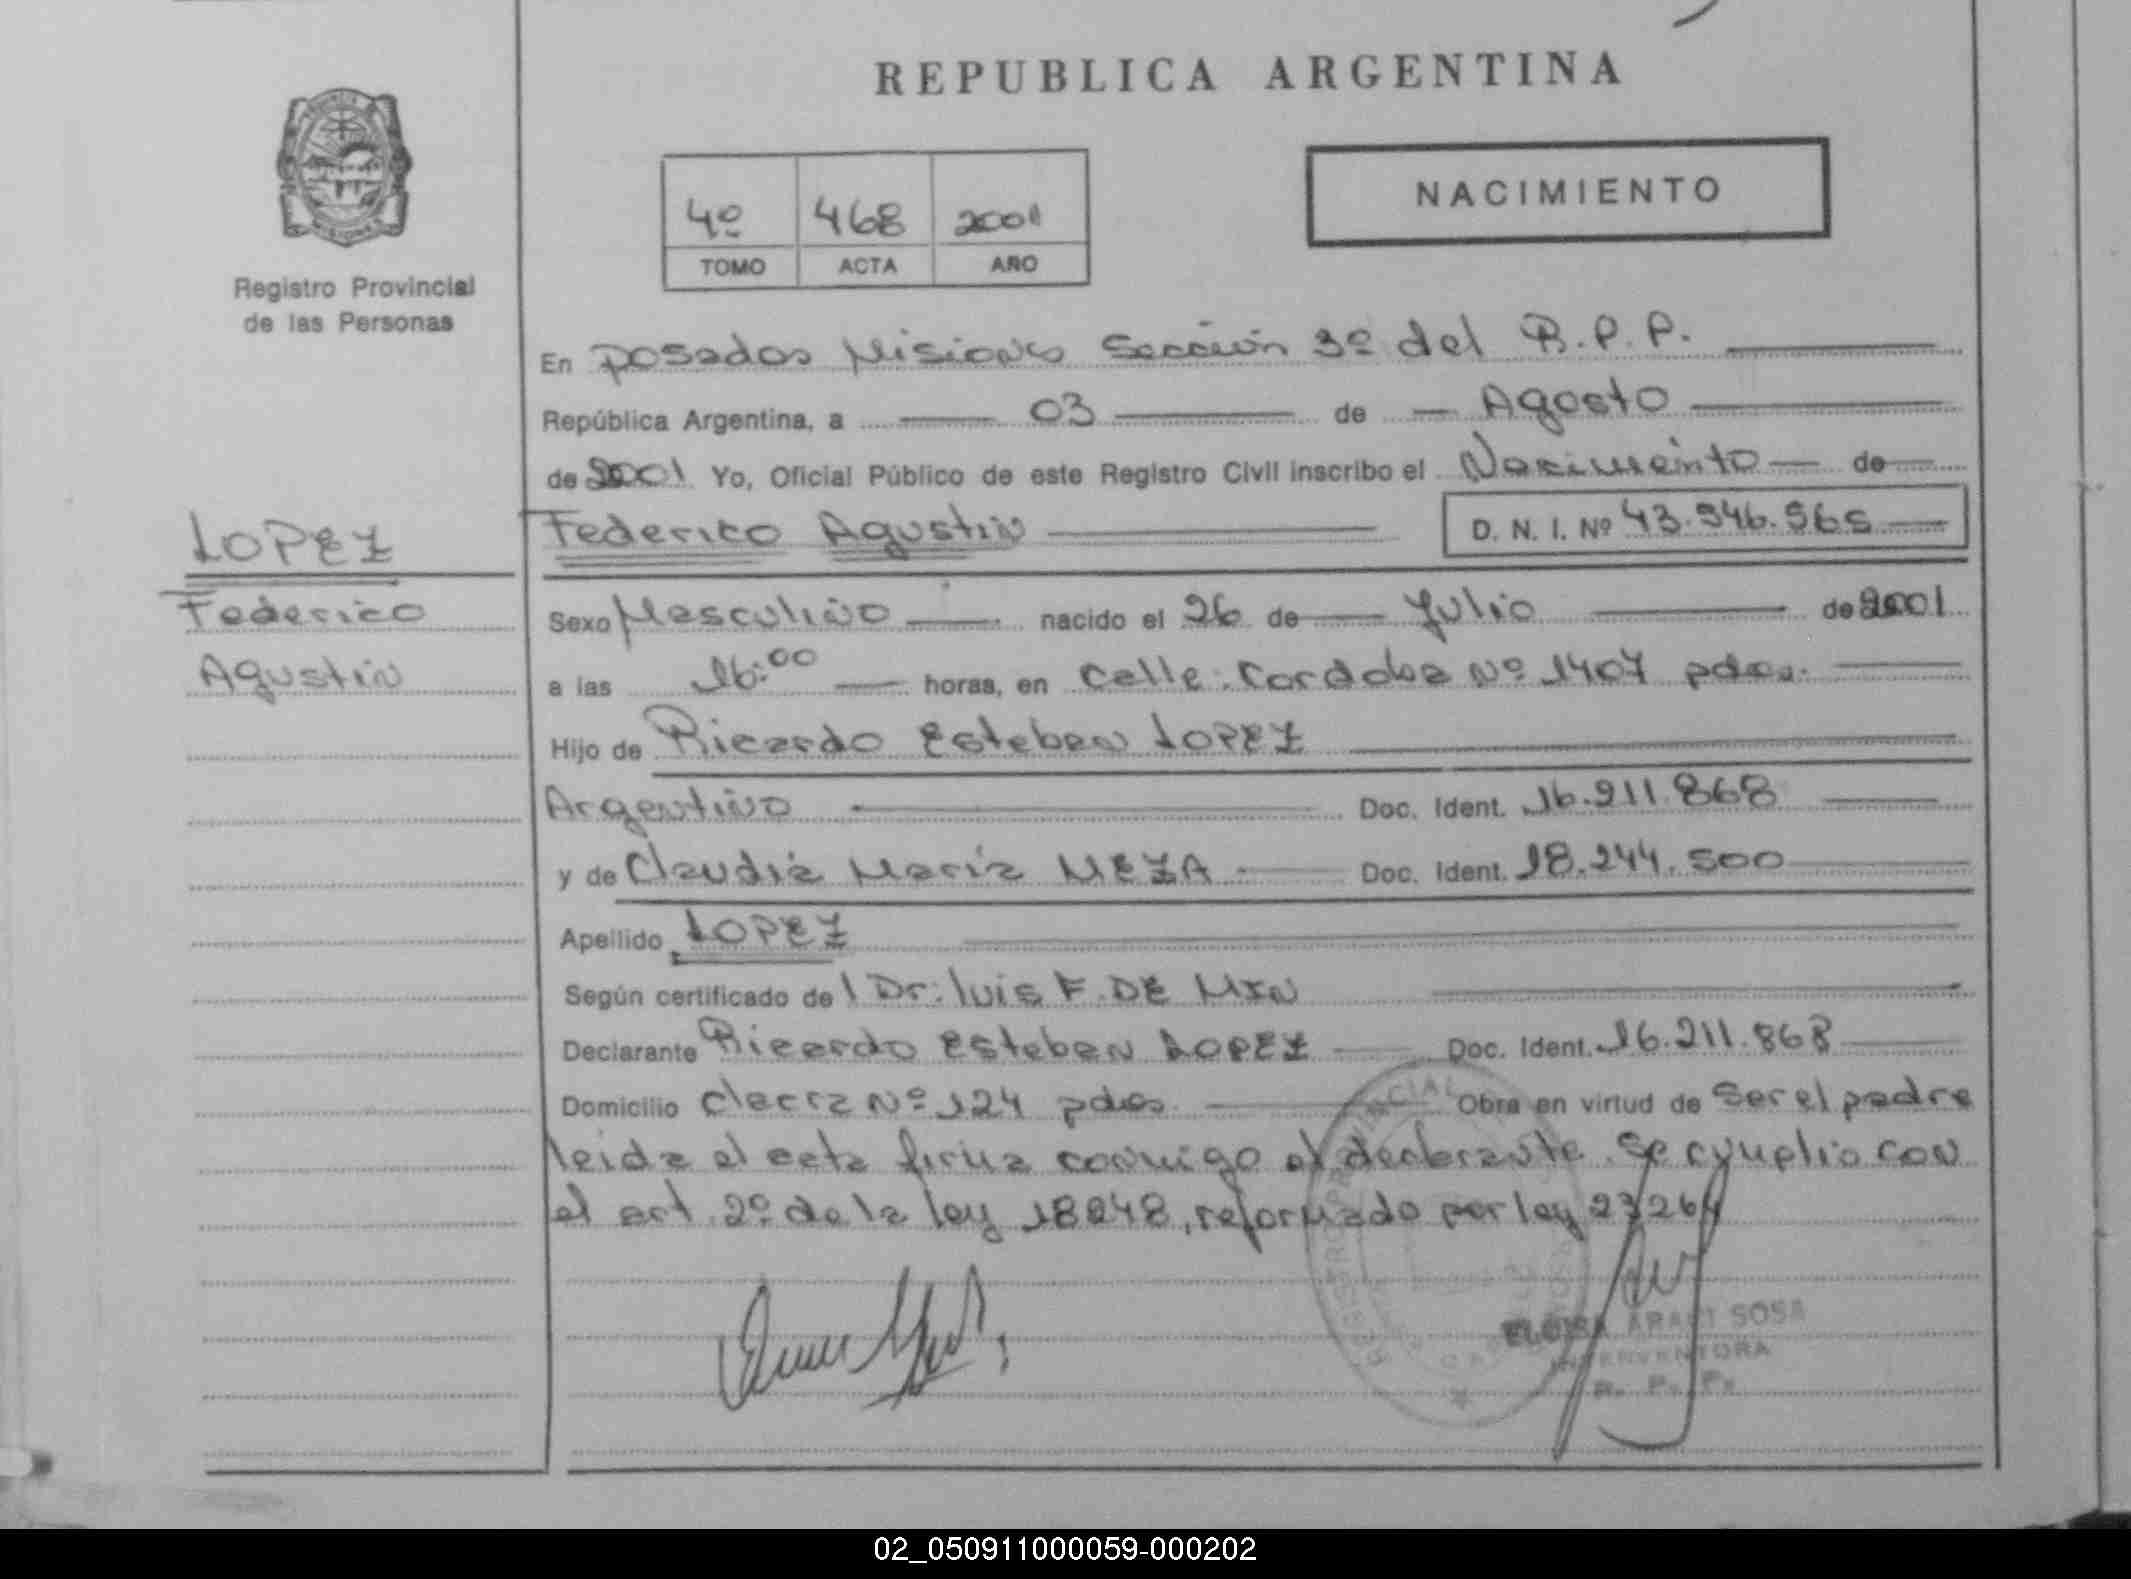 REPUBLICA ARGENTINA
4º 468 2001
TOMO ACTA AÑO
NACIMIENTO
Registro Provincial
de las Personas
En Posadas Misiones Sección 3º del R.P.P.
República Argentina, a 03 de Agosto
de 2001 Yo, Oficial Público de este Registro Civil inscribo el Nacimiento de
Federico Agustin D. N. I. Nº 43.546.565
LOPEZ
Federico
Agustin
Sexo Masculino nacido el 26 de Julio de 2001
a las 16:00 horas, en calle: Cordoba Nº 1407 pdas.
Hijo de Ricardo Esteban LOPEZ
Argentino Doc. Ident. 16.211.868
y de Claudia Maria MEZA Doc. Ident. 18.244.500
Apellido LOPEZ
Según certificado del Dr. Luis F. DE
Declarante Ricardo Esteban LOPEZ Doc. Ident. 16.211.868
Domicilio Nº 124 pdas. Obra en virtud de ser el padre
leida el acta firma conmigo el declarante. Se cumplio con
el art. 2º de la ley 18248, reformado por ley 23264
REGISTRO PROVINCIAL
SOSA
INTERVENTORA
R. P. P.
02_050911000059-000202